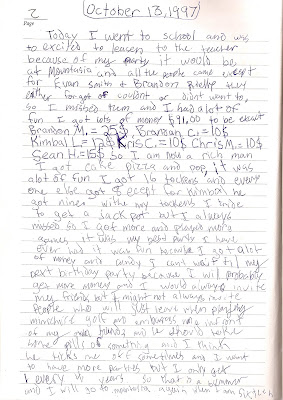 2
Page
October 13, 1997
Today I went to school and was
to excited to leacen to the teacher
because of my party it would be
at Mountasia and all the people came except
for Evan Smith & Brandon they
either forgot or couldnt or didnt want to,
so I missed them and I had alot of
fun I got lots of money $91.00 to be exact
Brandon M. = 25$, Brandan C. = 10$
Kimbal L = 12$ Kris C. = 10$ Chris M. = 10$
Sean H. = 15$ So I am now a rich man
I got cake pizza and pop, it was
alot of fun I got 16 tockens and every
one else got 8 except for Kimbal he
got nine with my tockens I tride
to get a Jack pot but I always
missed so I got more and played more
games, it was my best party I have
ever had I was because I got alot
of money and candy I cant wait til my
next birthday party because I will probably
get more money and I would always invite
my friends but I might not always invite
people who will just leave when playing
miniature golf and embaris me infront
of my friends he should take
some pill or something and I think
he ticks me off somtimes and I want
to have more parties but I only get
1 every years so that is a bummer
and I will go to mountasia again when I am